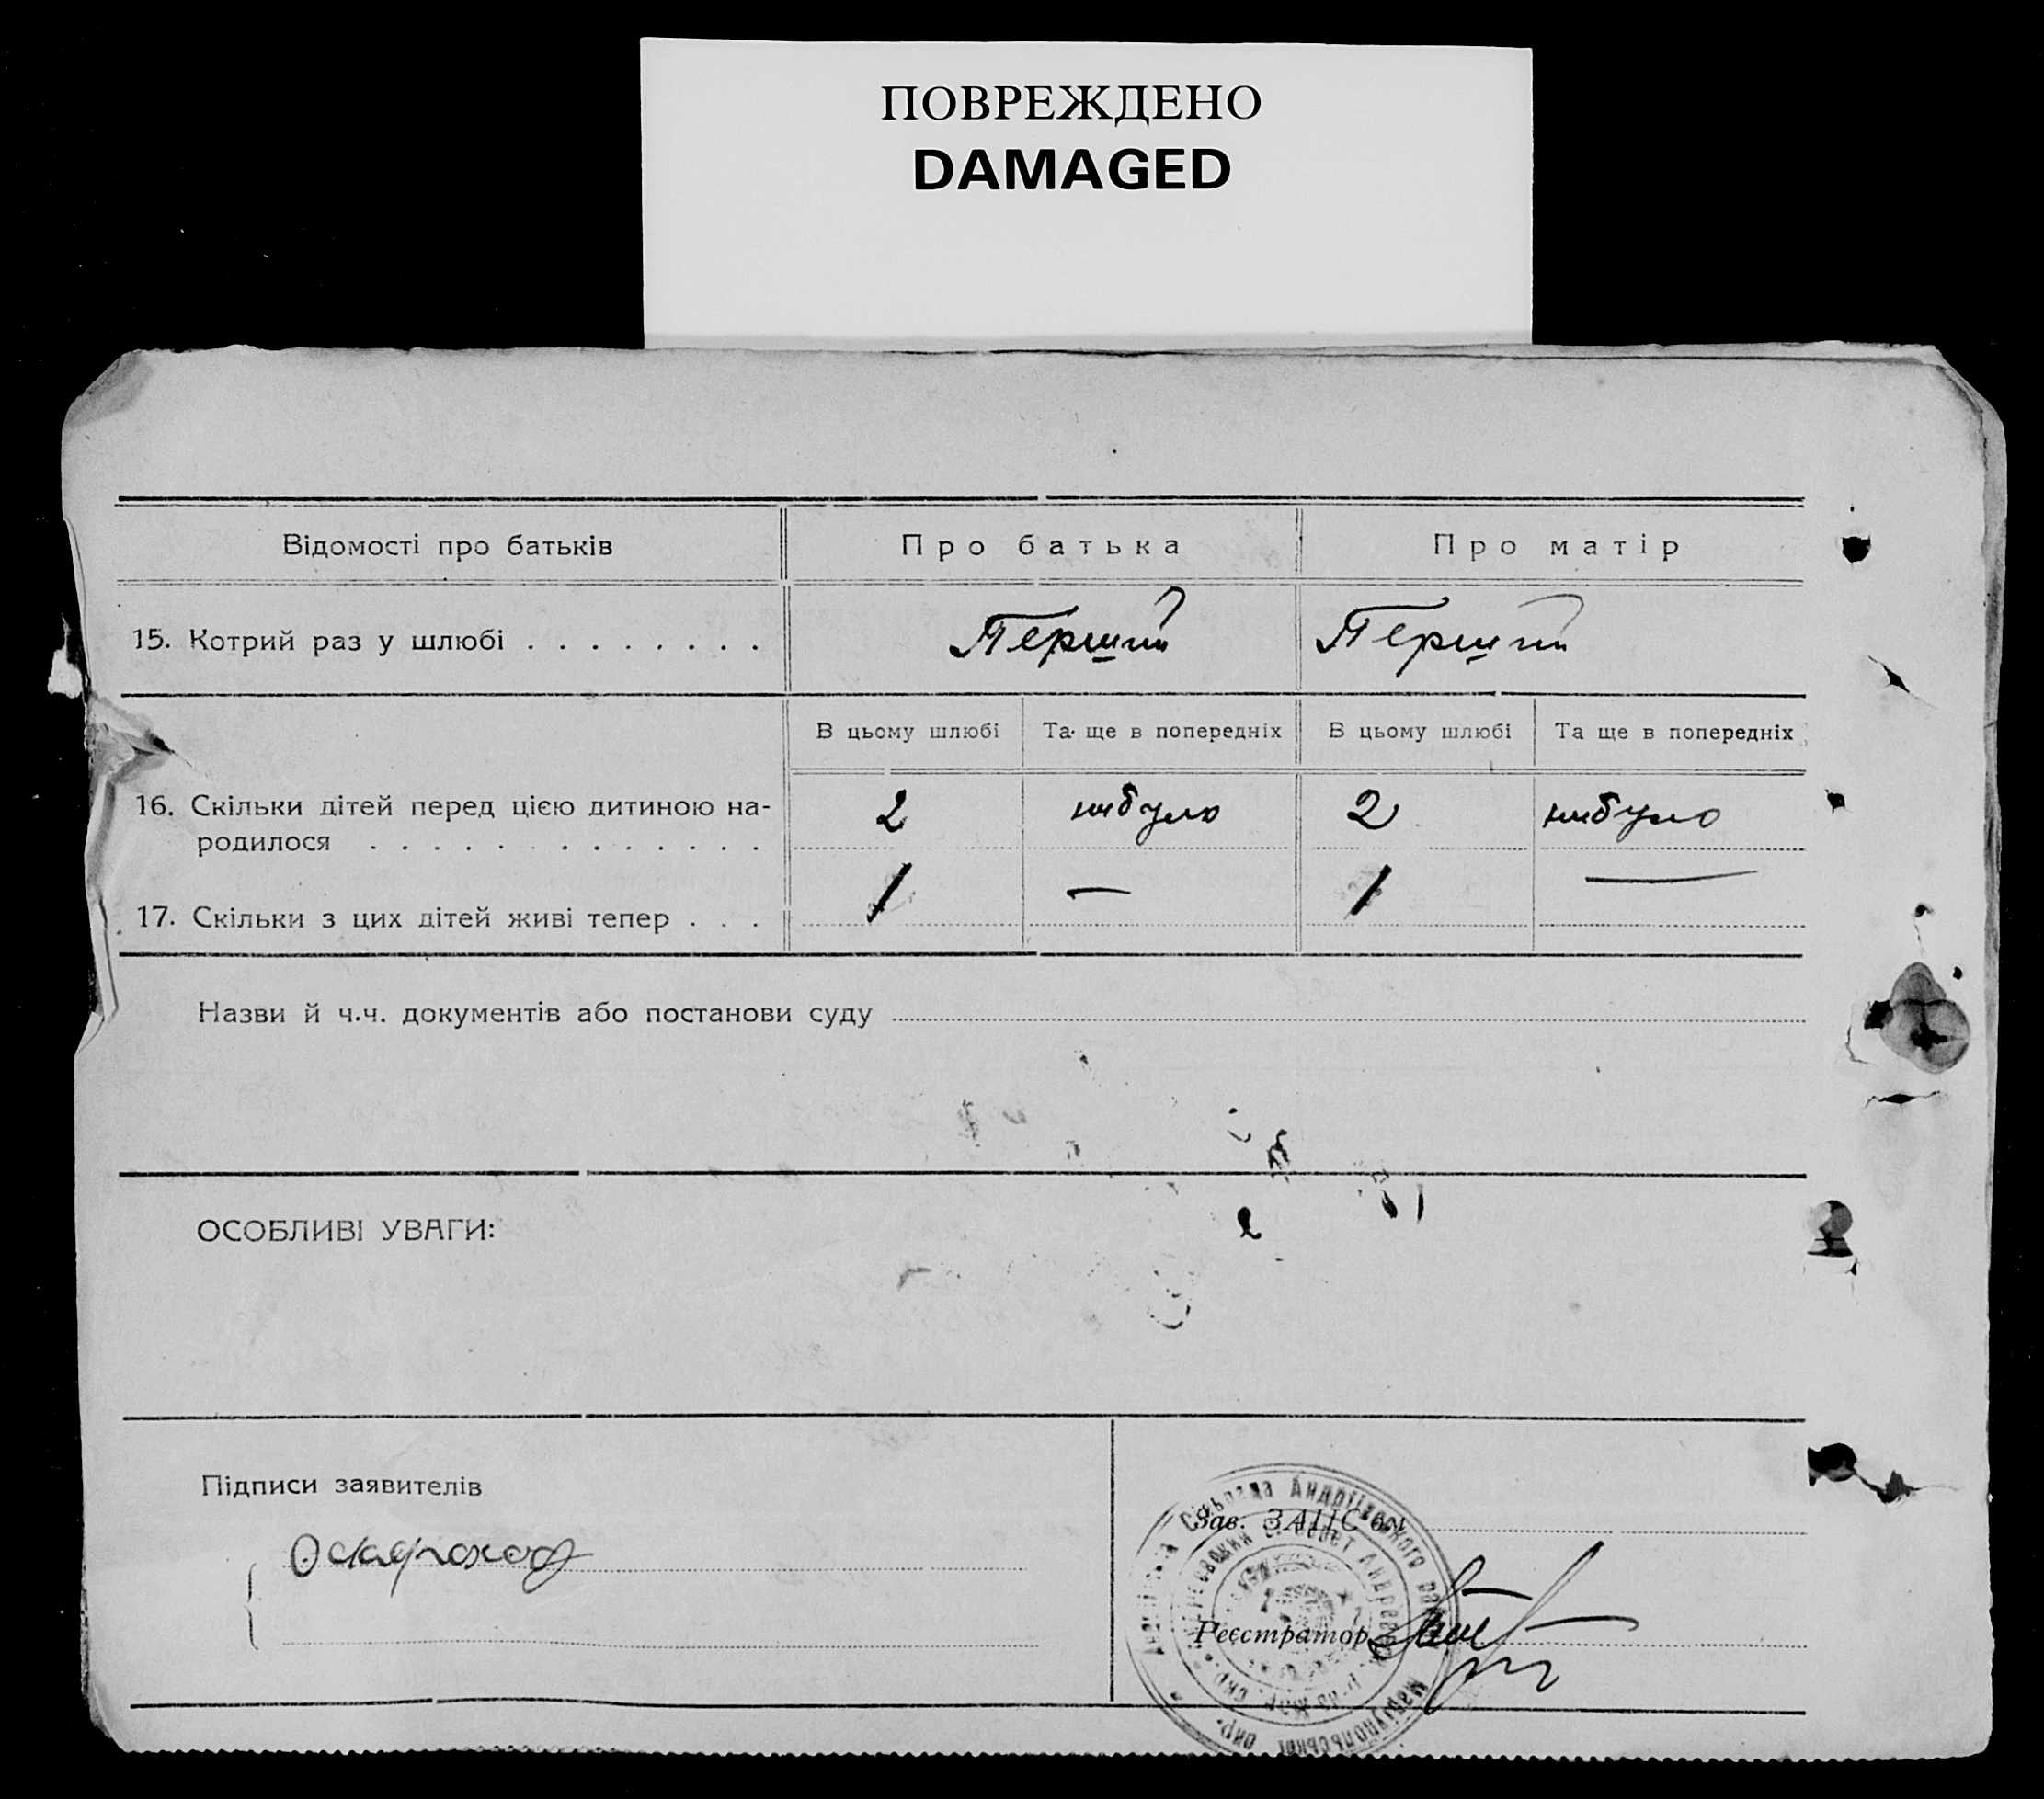 ПОВРЕЖДЕНО
DAMAGED
Відомості про батьків
Про батька
Про матір
15. Котрий раз у шлюбі . . . . . . . .
Перший
Перший
В цьому шлюбі
Та ще в попередніх
В цьому шлюбі
Та ще в попередніх
16. Скільки дітей перед цією дитиною на-
родилося . . . . . . . . . . . . .
2
небуло
2
небуло
17. Скільки з цих дітей живі тепер . . .
1
—
1
—
Назви й ч.ч. документів або постанови суду
ОСОБЛИВІ УВАГИ:
Підписи заявителів
Зав. ЗАГС'ом
Реєстратор
Сільрада Андріївського
Маріупольської окр.